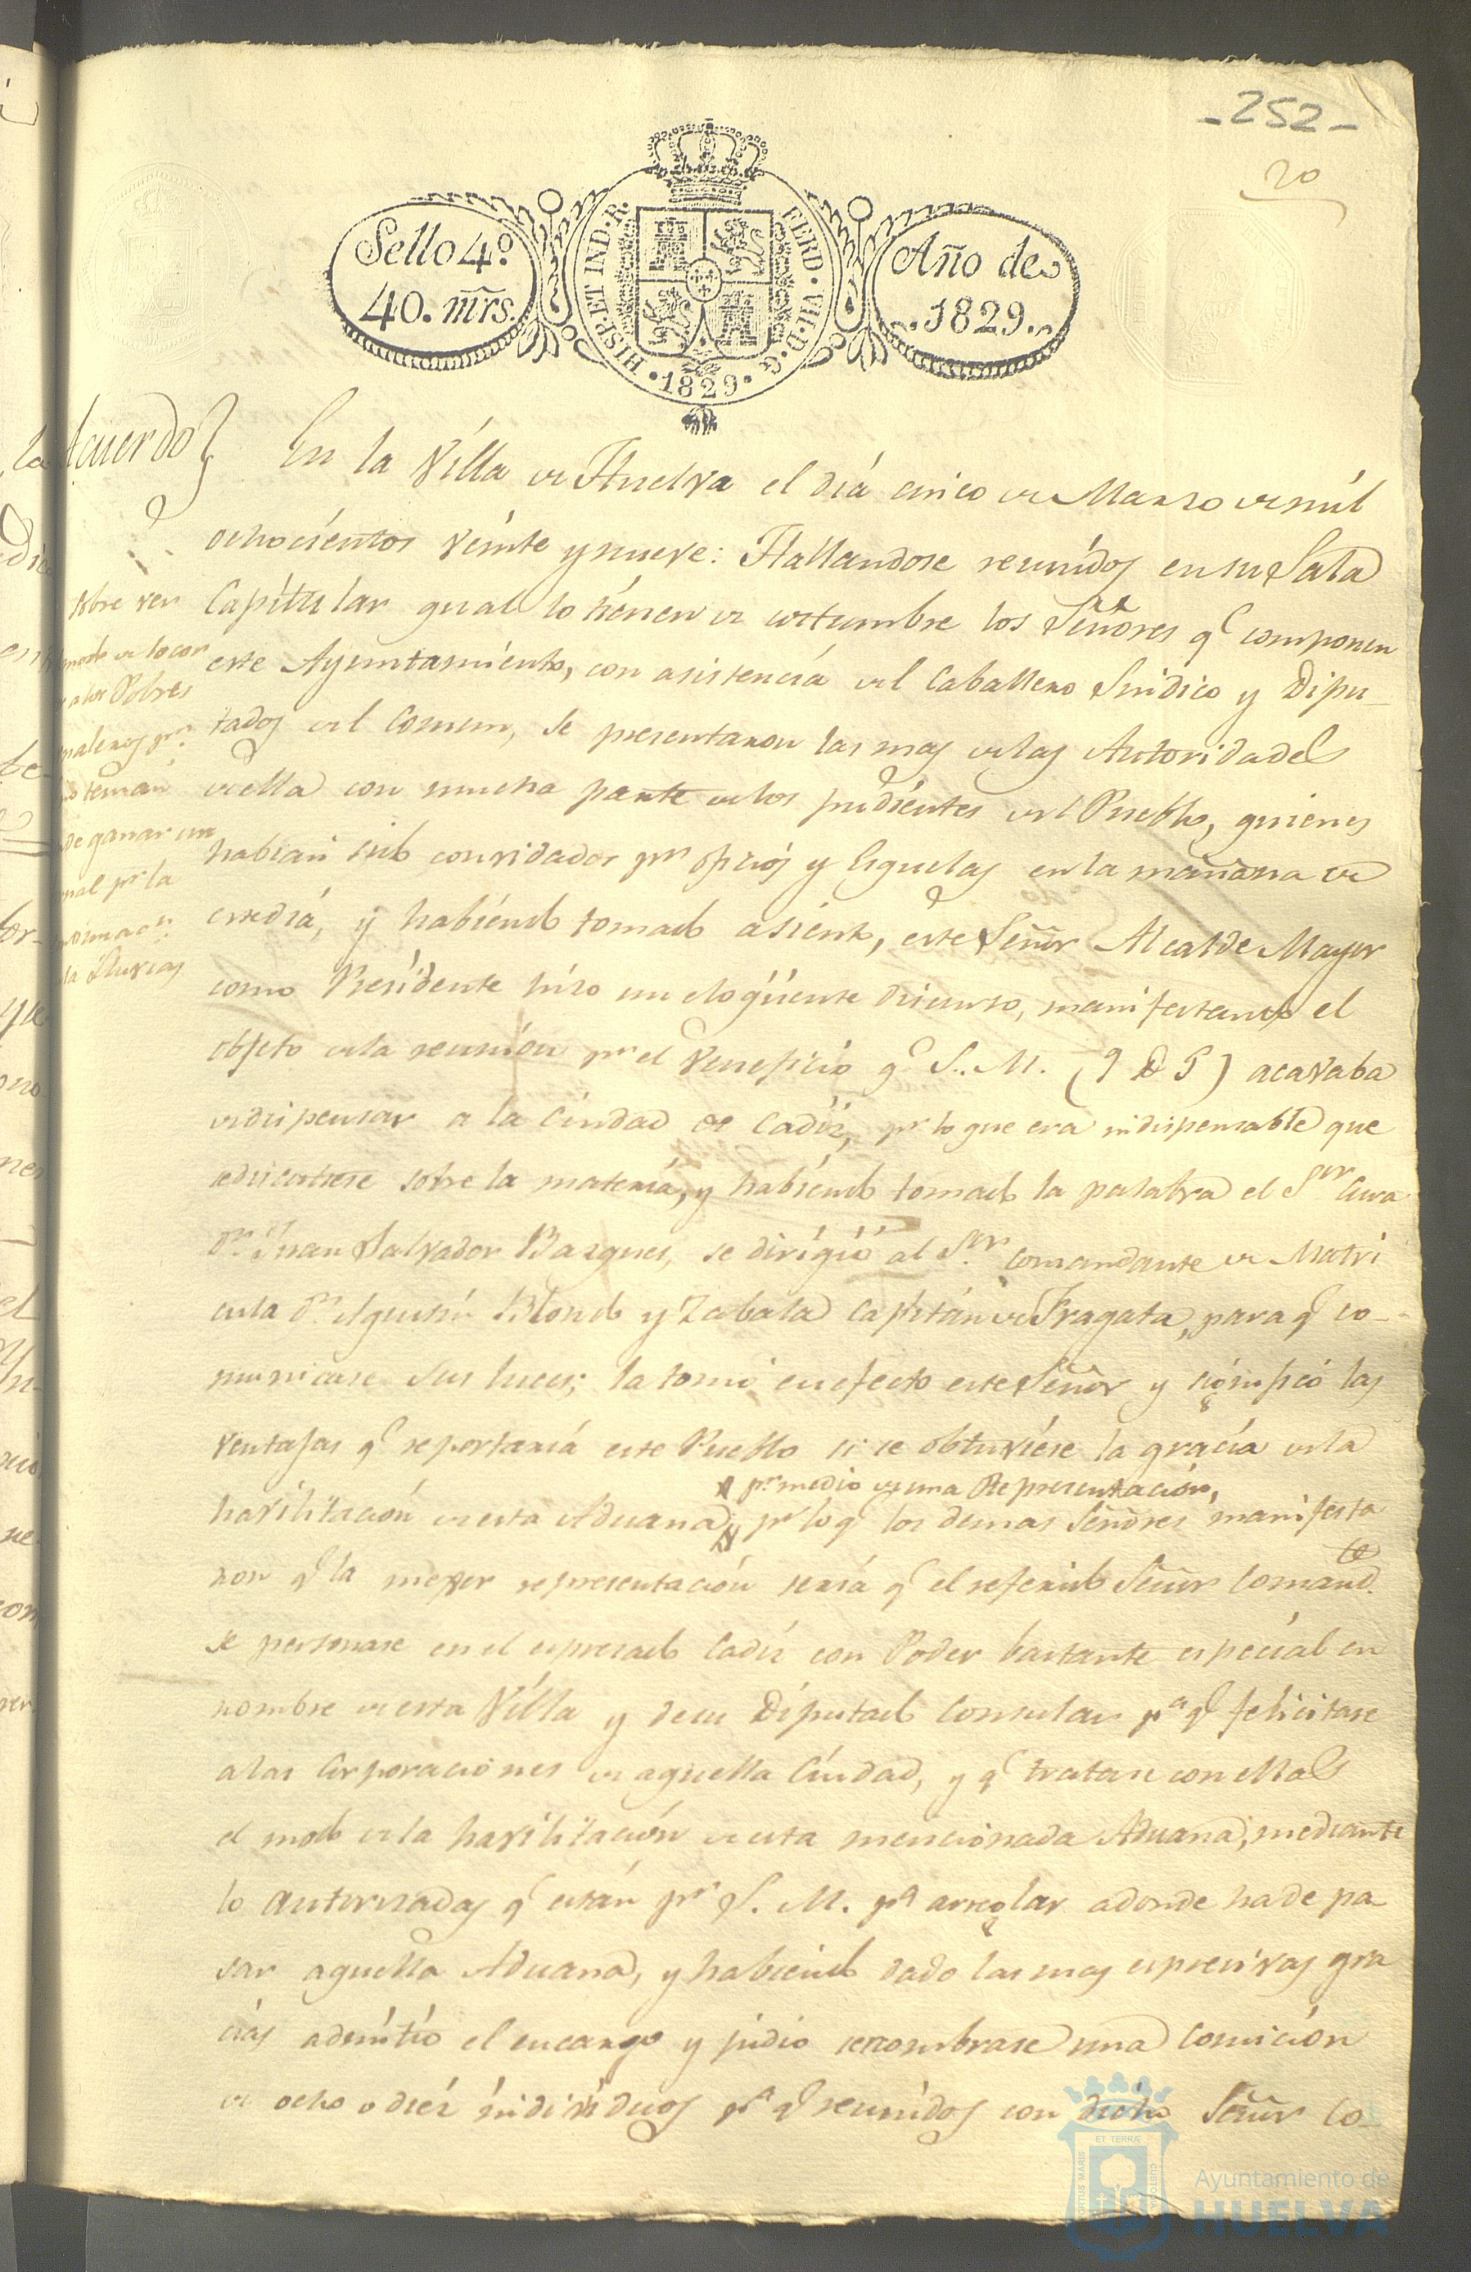 -252-
20
Sello 4º
40. mrs.
HISP. ET IND. R. FERD. VII. D. G. 1829
Año de
1829.
Acuerdo
En la Villa de Huelva el día cinco de Marzo de mil
ochocientos veinte y nueve: Hallandose reunidos en su Sala
Capitular qual lo tienen de costumbre los Señores q.e componen
este Ayuntamiento, con asistencia del Caballero Sindico y Dipu-
tados del Comun, se presentaron las mas de las Autoridades
de ella con mucha parte de los pudientes del Pueblo, quienes
habian sido convidados p.r oficios y Esquelas en la mañana de
este dia, y habiendo tomado asiento, este Señor Alcalde Mayor
como Presidente hizo un eloqüente discurso, manifestando el
objeto de la reunion p.r el veneficio q.e S. M. (q D G) acavaba
de dispensar a la Ciudad de Cadiz, p.r lo que era indispensable que
se discutiese sobre la materia, y habiendo tomado la palabra el S.or Cura
D.n Juan Salvador Bazques, se dirigió al S.or Comandante de Matri
cula D.n Agustin Blondo y Zabala Capitán de Fragata, para q.e co-
municase sus luces; la tomó en efecto este Señor y significó las
ventajas q.e reportaria este Pueblo si se obtuviese la gracia de la
p.r medio de una Representación,
havilitación de esta Aduana, p.r lo q.e los demas Señores manifesta
ron q.e la mejor representación sería q.e el referido Señor Comand.te
se personase en el expresado Cadiz con Poder bastante especial en
nombre de esta Villa y de su Diputado Consular p.a q.e felicitase
a las Corporaciones de aquella Ciudad, y q.e tratase con ellas
el modo de la havilitación de esta mencionada Aduana, mediante
lo autorizadas q.e están p.r S. M. p.a arreglar adonde ha de pa
sar aquella Aduana, y habiendo dado las mas expresivas gra
cias admitió el encargo y pidio se nombrase una Comición
de ocho o diez individuos p.a q.e reunidos con dicho Señor Co-
Sobre ven
de locor
a los Pobres
p.r
no tenian
de ganar un
p.r la
la Lluvias
ET TERRÆ
PORTUS MARIS
CUSTODIA
Ayuntamiento de
HUELVA